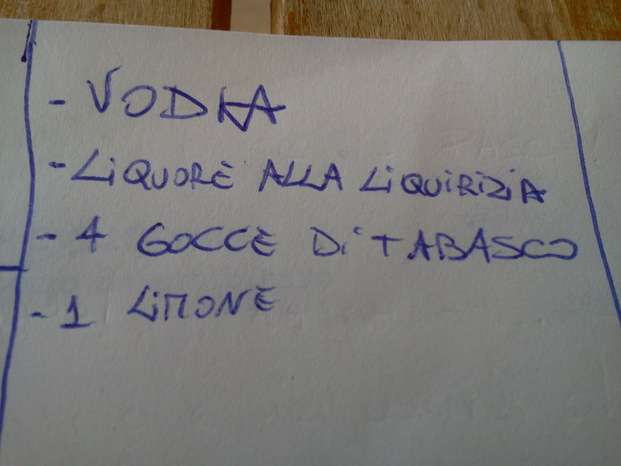 - VODKA
- LIQUORE ALLA LIQUIRIZIA
- 4 GOCCE DI TABASCO
- 1 LIMONE